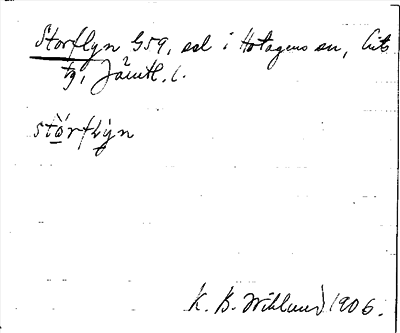 Storflyn G59, sel i Hotagens sn, Lits
tg, Jämtl. l.
stòrflyn
K. B. Wiklund 1906.